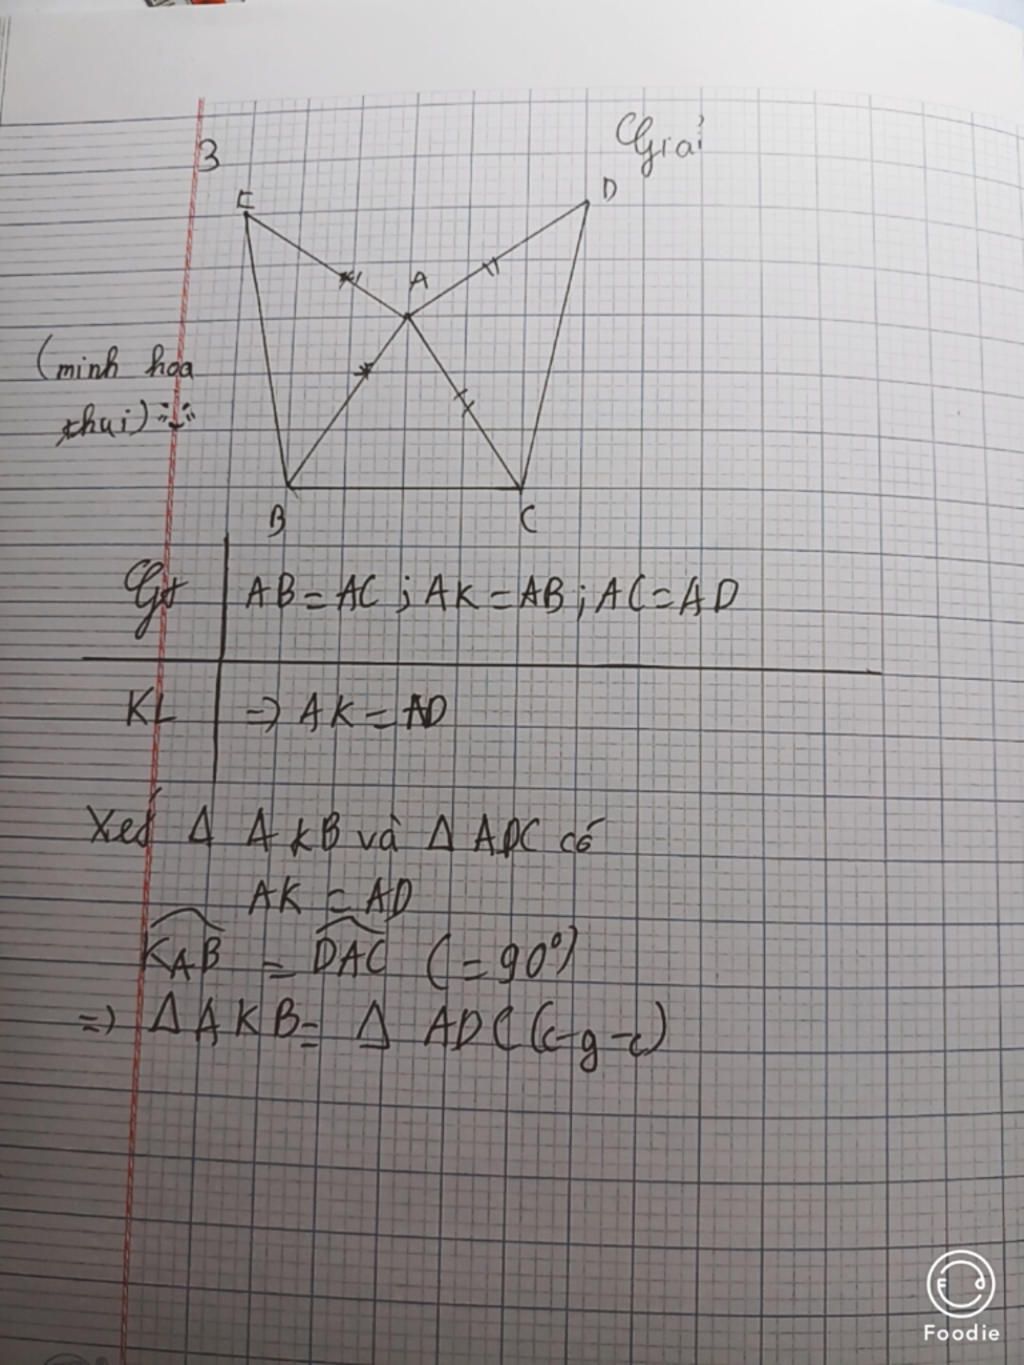 Giải
3
E
D
A
(minh hoạ
thui)
B
C
Gt
AB = AC ; AK = AB ; AC = AD
KL
=> AK = AD
Xét Δ AKB và Δ ADC có
AK = AD
KAB = DAC (= 90°)
=> Δ AKB = Δ ADC (c-g-c)
F d
Foodie